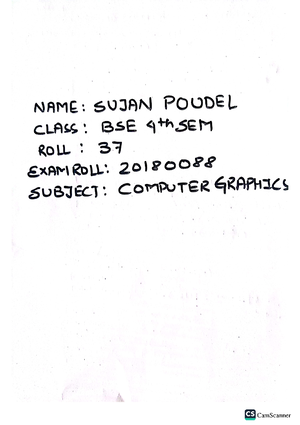 NAME: SUJAN POUDEL
CLASS: BSE 4th SEM
ROLL : 37
EXAM ROLL: 20180088
SUBJECT: COMPUTER GRAPHICS
CS CamScanner